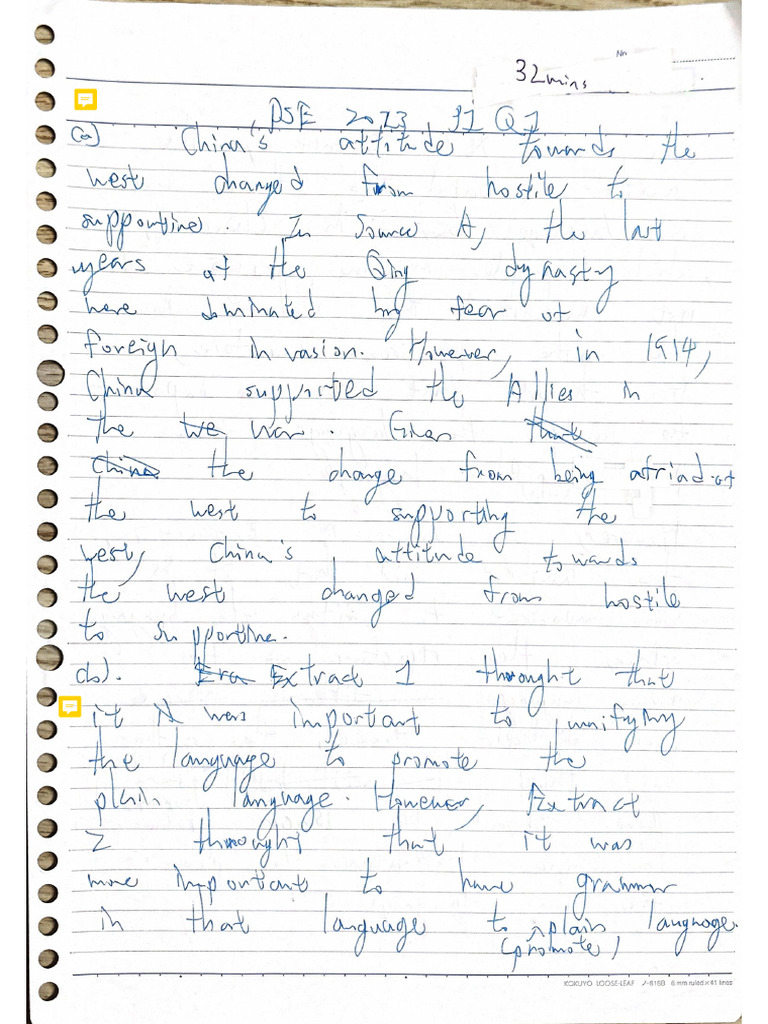 No
32mins
DSE 2023 P1 Q1
(a) China's attitude towards the
west changed from hostile to
supportive. In Source A, the last
years of the Qing dynasty
were dominated by fear of
foreign invasion. However, in 1914,
China supported the Allies in
the we war. Given that
China the change from being afriad of
the west to supporting the
west, China's attitude towards
the west changed from hostile
to supportive.
(b). Era Extract 1 throught that
it was important to unifying
the language to promote the
plain language. However, Extract
2 throught that it was
more important to have grammar
in that language to plain language.
(promote)
KOKUYO LOOSE-LEAF ノ-816B 6 mm ruled×41 lines